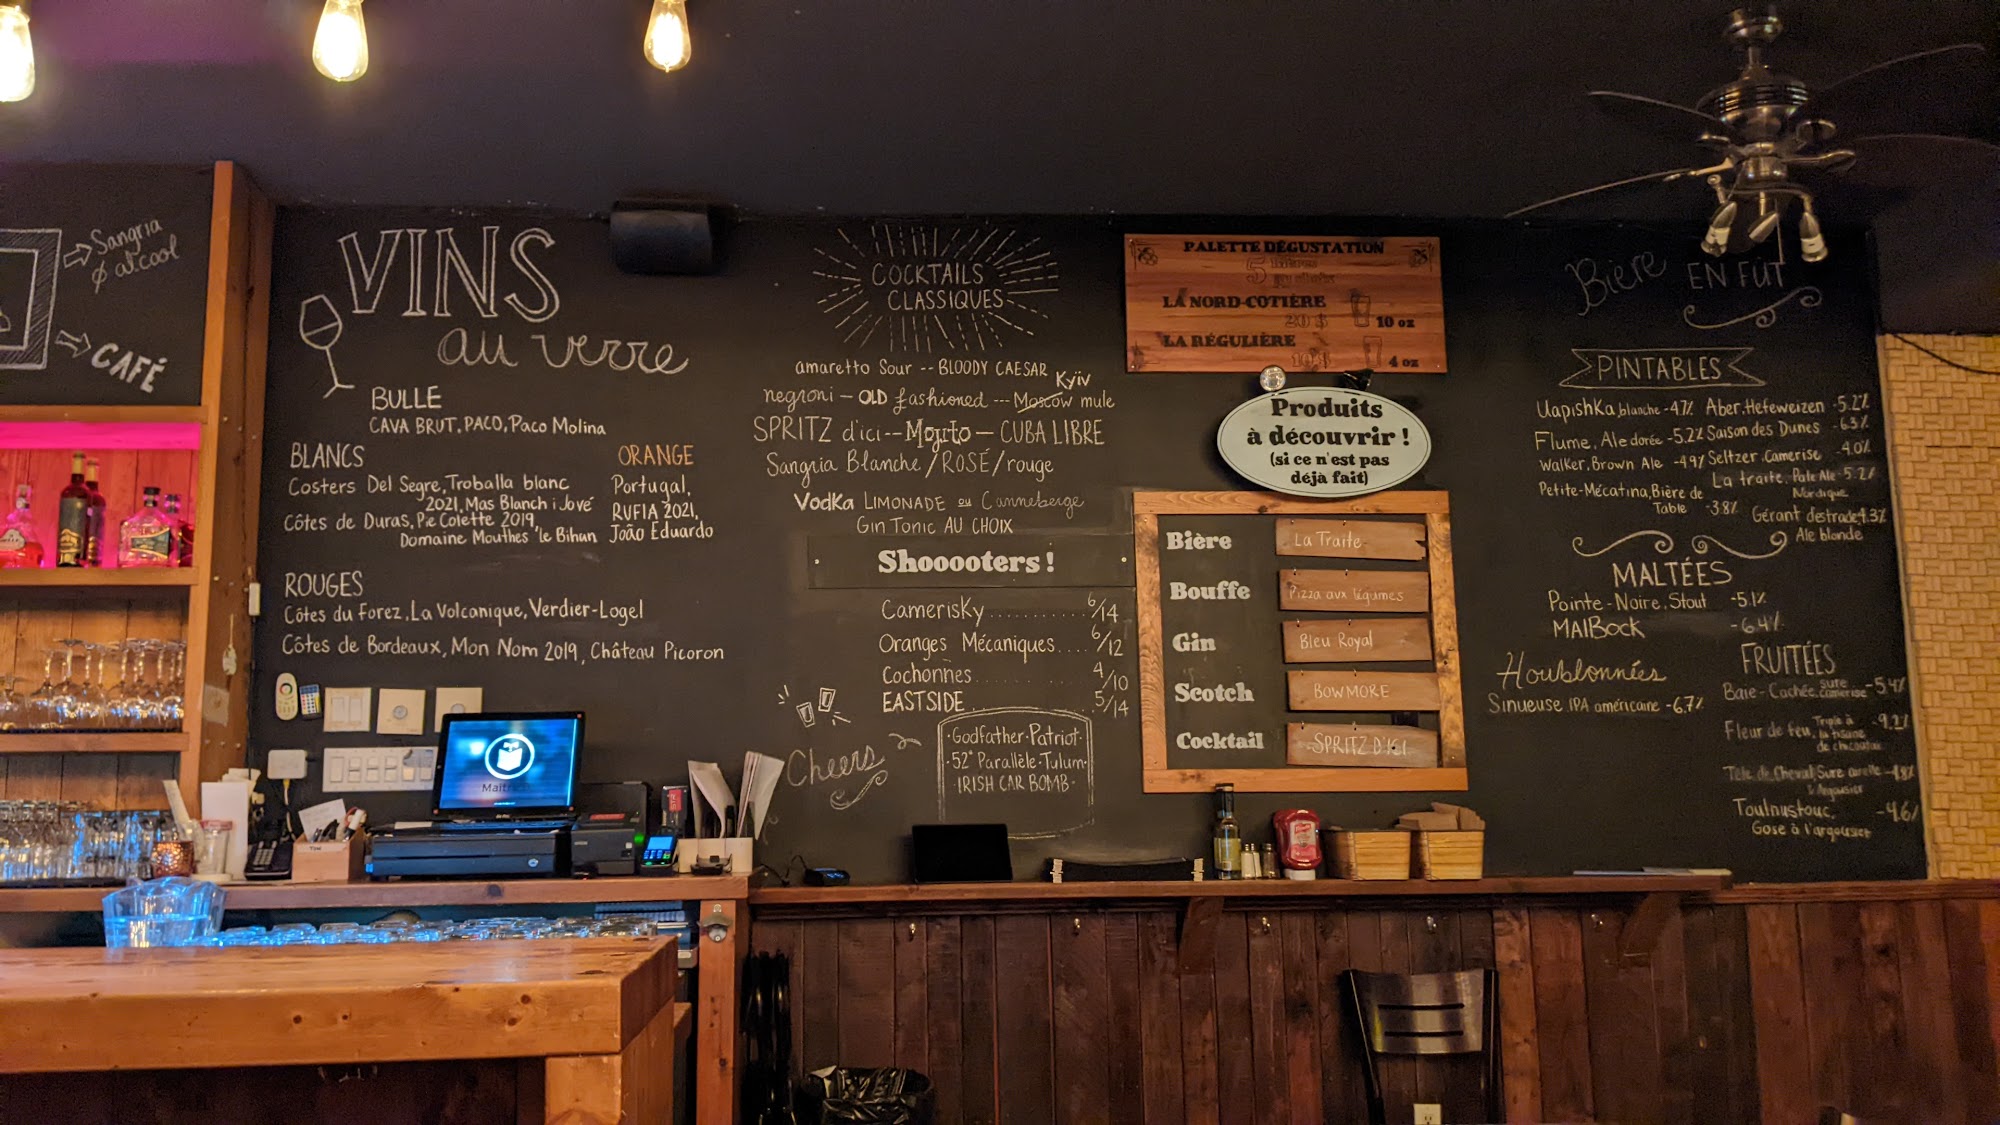 Sangria
Ø alcool
CAFÉ
VINS
au verre
BULLE
CAVA BRUT, PACO, Paco Molina
BLANCS
Costers Del Segre, Troballa blanc
2021, Mas Blanch i Jové
Côtes de Duras, Pie Colette 2019,
Domaine Mouthes 'le Bihan
ORANGE
Portugal,
RUFIA 2021,
João Eduardo
ROUGES
Côtes du Forez, La Volcanique, Verdier-Logel
Côtes de Bordeaux, Mon Nom 2019, Château Picoron
COCKTAILS
CLASSIQUES
amaretto Sour -- BLOODY CAESAR
Kyïv
negroni - OLD fashioned --- Moscow mule
SPRITZ d'ici -- Mojito - CUBA LIBRE
Sangria Blanche / ROSÉ / rouge
Vodka LIMONADE ou Canneberge
Gin Tonic AU CHOIX
Shooooters !
Camerisky 6/14
Oranges Mécaniques 6/12
Cochonnes 4/10
EASTSIDE 5/14
Cheers
·Godfather·Patriot·
·52° Parallèle·Tulum·
·IRISH CAR BOMB·
PALETTE DÉGUSTATION
5 Bières
LA NORD-CÔTIÈRE
20 $ 10 oz
LA RÉGULIÈRE
10 $ 4 oz
Produits
à découvrir !
(si ce n'est pas
déjà fait)
Bière La Traite
Bouffe Pizza aux légumes
Gin Bleu Royal
Scotch BOWMORE
Cocktail SPRITZ D'ICI
Bière EN FÛT
PINTABLES
Uapishka, blanche -4.7%
Flume, Ale dorée -5.2%
Walker, Brown Ale -4.9%
Petite-Mécatina, Bière de
Table -3.8%
Aber, Hefeweizen -5.2%
Saison des Dunes -6.3%
Seltzer, Camerise -4.0%
La traite, Pale Ale -5.2%
Nordique
Gérant d'estrade 4.3%
Ale blonde
MALTÉES
Pointe-Noire, Stout -5.1%
MAIBOCK -6.4%
Houblonnées
Sinueuse, IPA américaine -6.7%
FRUITÉES
Baie-Cachée, sure camerise -5.4%
Fleur de feu, Triple à -9.2%
la tisane
de chicoutai
Tête de Cheval, Sure airelle -4.8%
& Argousier
Toulnustouc, -4.6%
Gose à l'argousier